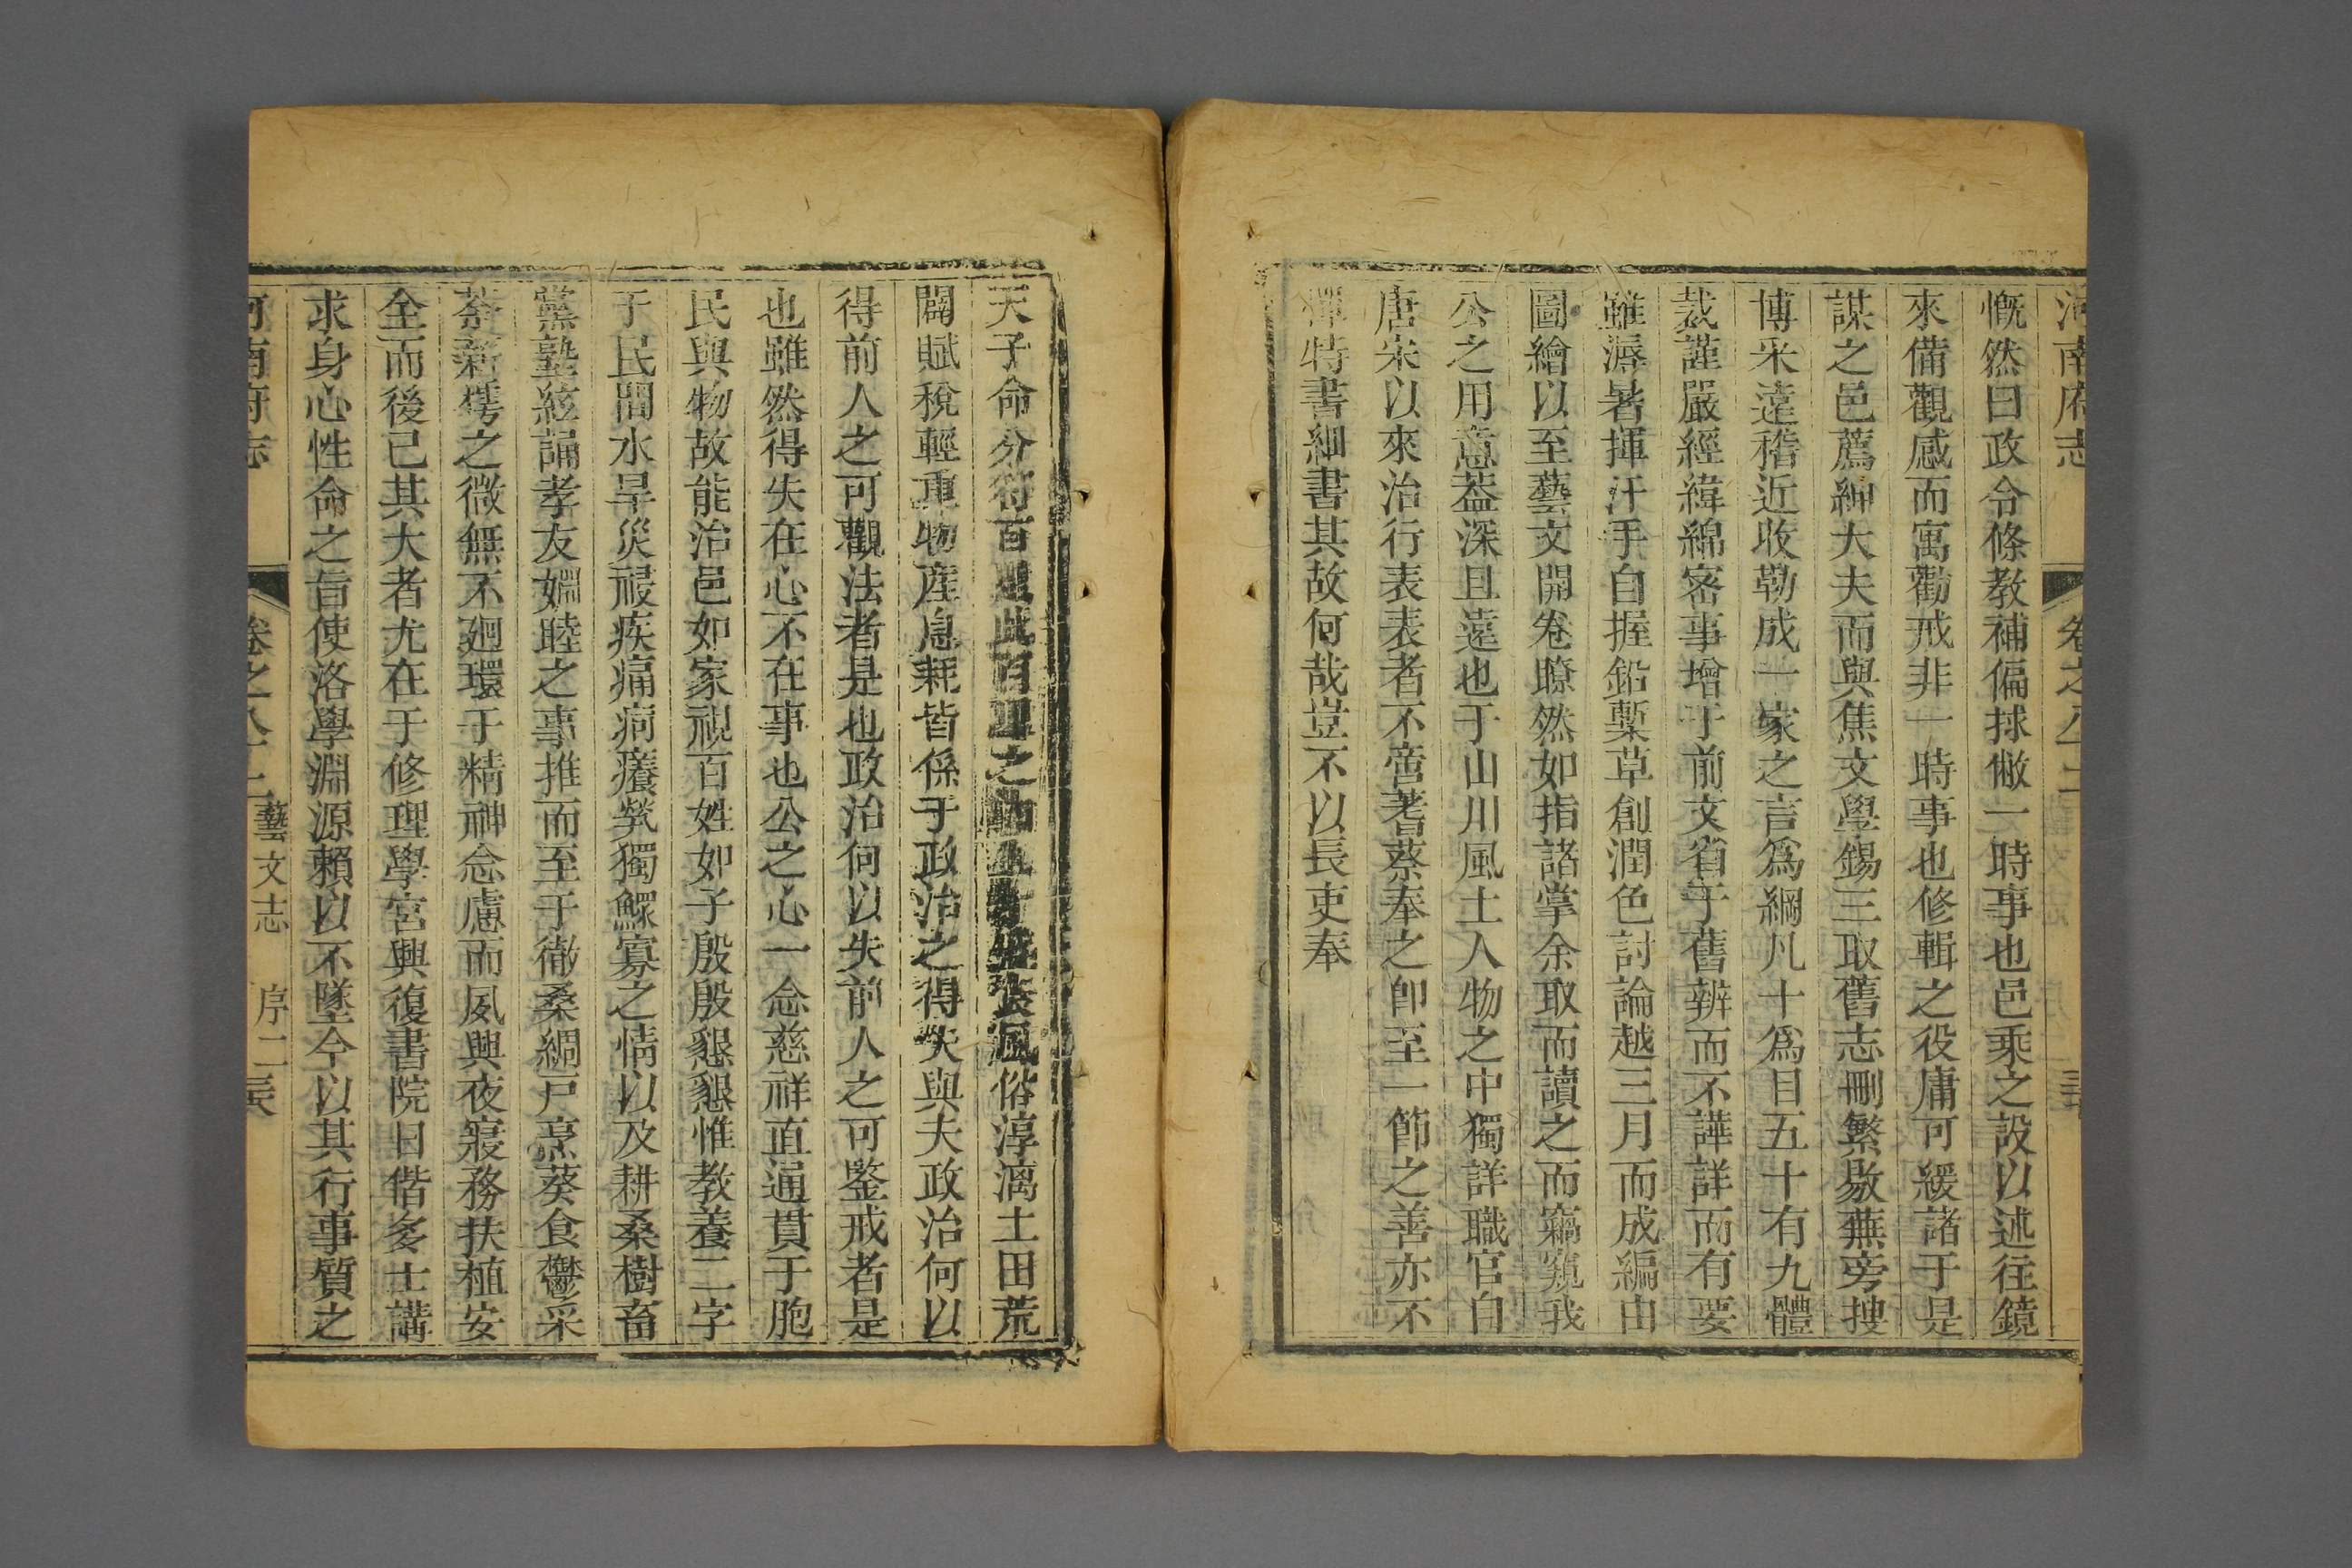 河南府志 卷之八十二
慨然曰政令條教補偏捄敝一時事也邑乘之設以述往鏡
來備觀感而寓勸戒非一時事也修輯之役庸可緩諸于是
謀之邑薦紳大夫而與焦文學錫三取舊志刪繁剔蕪旁搜
博采遠稽近收勒成一家之言爲綱凡十爲目五十有九體
裁謹嚴經緯綿密事增于前文省于舊辨而不譁詳而有要
雖溽暑揮汗手自握鉛槧草創潤色討論越三月而成編由
圖繪以至藝文開卷瞭然如指諸掌余取而讀之而竊窺我
公之用意葢深且遠也于山川風土人物之中獨詳職官自
唐宋以來治行表表者不啻蓍蔡奉之卽至一節之善亦不
憚特書細書其故何哉豈不以長吏奉
天子命分符百里此百里之風俗淳漓土田荒
闢賦稅輕重物産息耗皆係于政治之得失與夫政治何以
得前人之可觀法者是也政治何以失前人之可鑒戒者是
也雖然得失在心不在事也公之心一念慈祥直通貫于胞
民與物故能治邑如家視百姓如子殷殷懇懇惟教養二字
于民間水旱災祲疾痛疴癢煢獨鰥寡之情以及耕桑樹畜
黨塾絃誦孝友婣睦之事推而至于徹桑綢戶烹葵食鬱采
荼薪樗之微無不廻環于精神念慮而夙興夜寢務扶植安
全而後已其大者尤在于修理學宮興復書院日偕多士講
求身心性命之旨使洛學淵源賴以不墜今以其行事質之
河南府志 卷之八十二 藝文志 序二